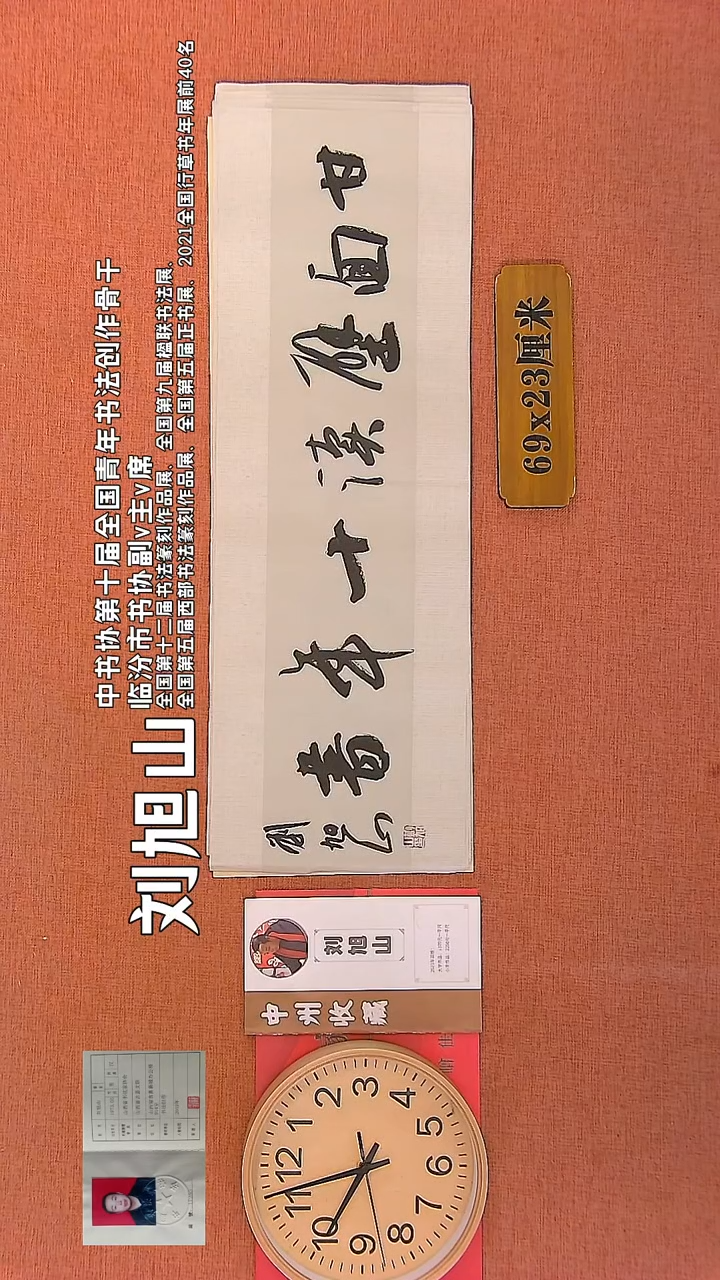 中书协第十届全国青年书法创作骨干
临汾市书协副v主v席
全国第十二届书法篆刻作品展、全国第九届楹联书法展、
全国第五届西部书法篆刻作品展、全国第五届正书展、2021全国行草书年展前40名
刘旭山
甘面壁读十年書
刘旭山
69x23厘米
刘旭山
中州收藏
12
1
2
3
4
5
6
7
8
9
10
11